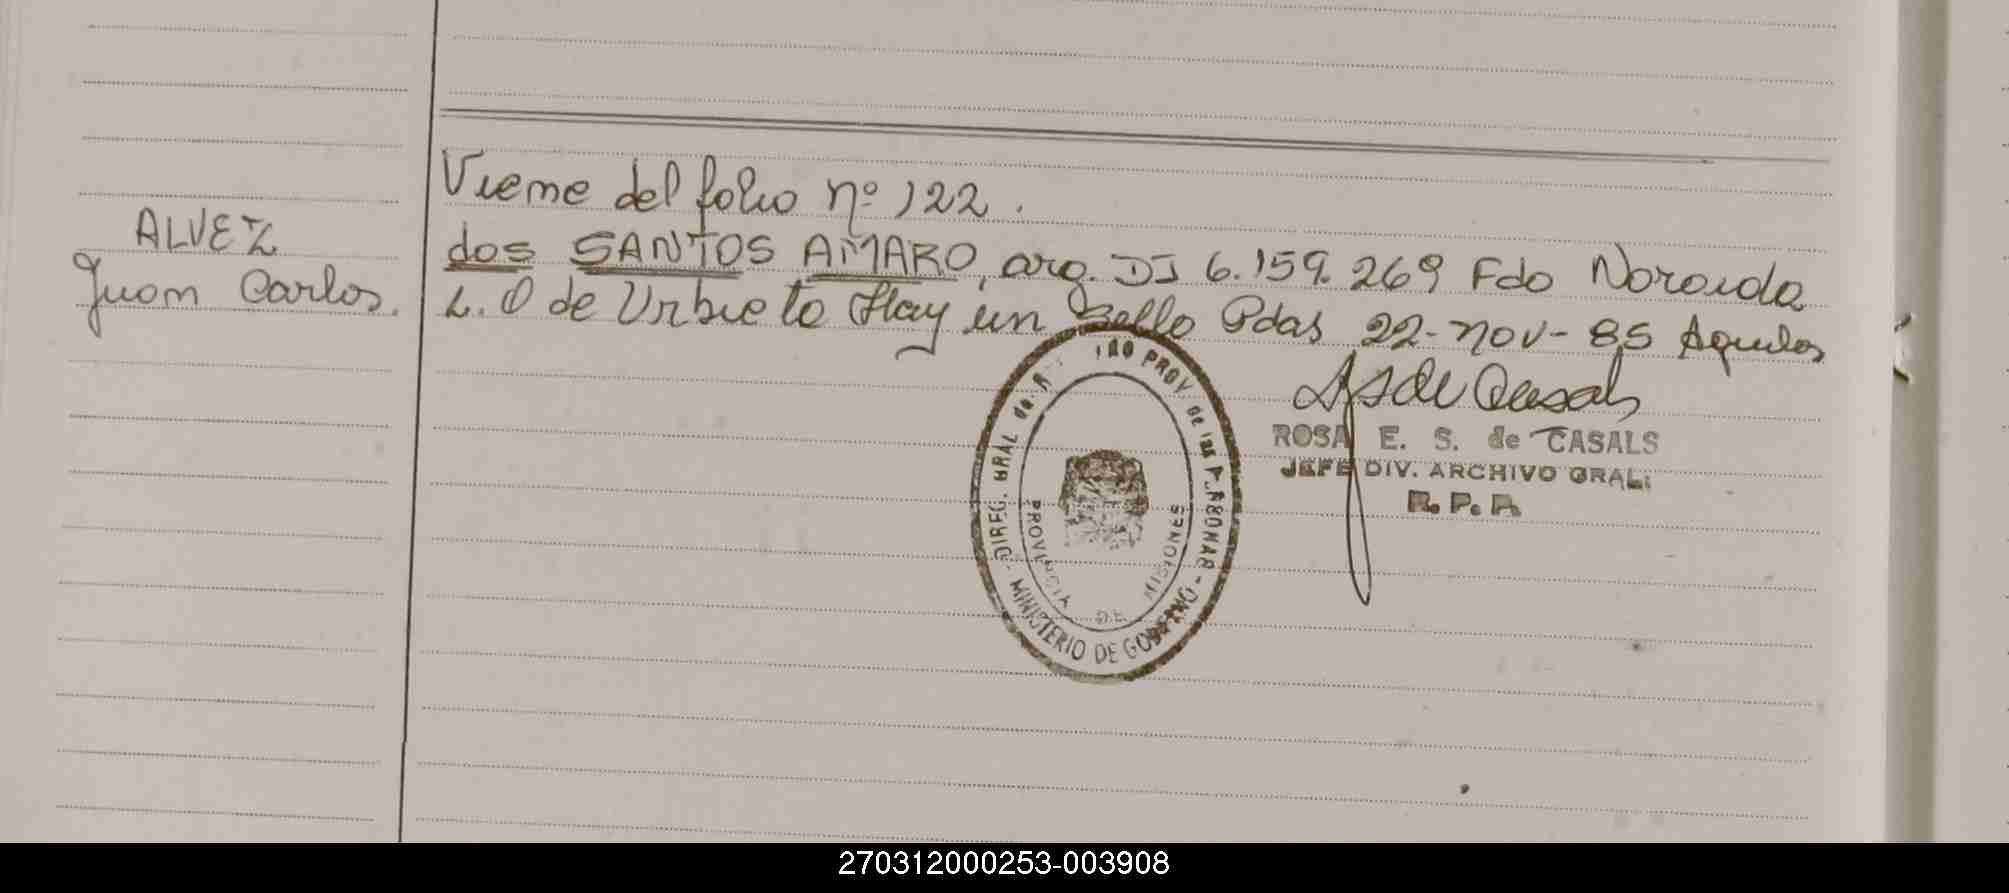 Viene del folio nº 122.
ALVEZ
Juan Carlos.
dos SANTOS AMARO, arg. DJ 6.159.269 Fdo Noraida
L. O de Urbieto Hay un Sello Pdas 22-nov-85
ROSA E. S. de CASALS
JEFE DIV. ARCHIVO GRAL.
R. P. P.
DIREG. GRAL de PROV. de las PERSONAS - MINISTERIO DE GOBIERNO -
PROVINCIA DE MISIONES
270312000253-003908